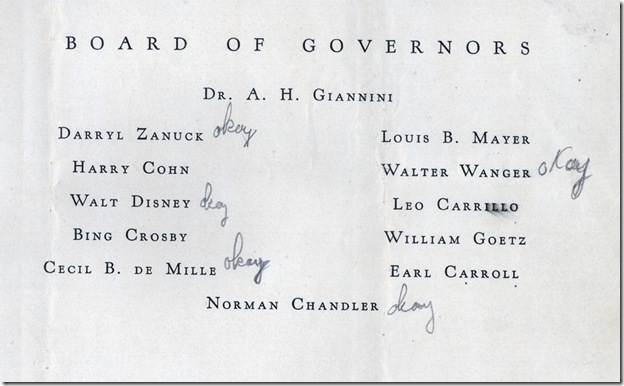 BOARD OF GOVERNORS
DR. A. H. GIANNINI
DARRYL ZANUCK okay LOUIS B. MAYER
HARRY COHN WALTER WANGER okay
WALT DISNEY okay LEO CARRILLO
BING CROSBY WILLIAM GOETZ
CECIL B. DE MILLE okay EARL CARROLL
NORMAN CHANDLER okay